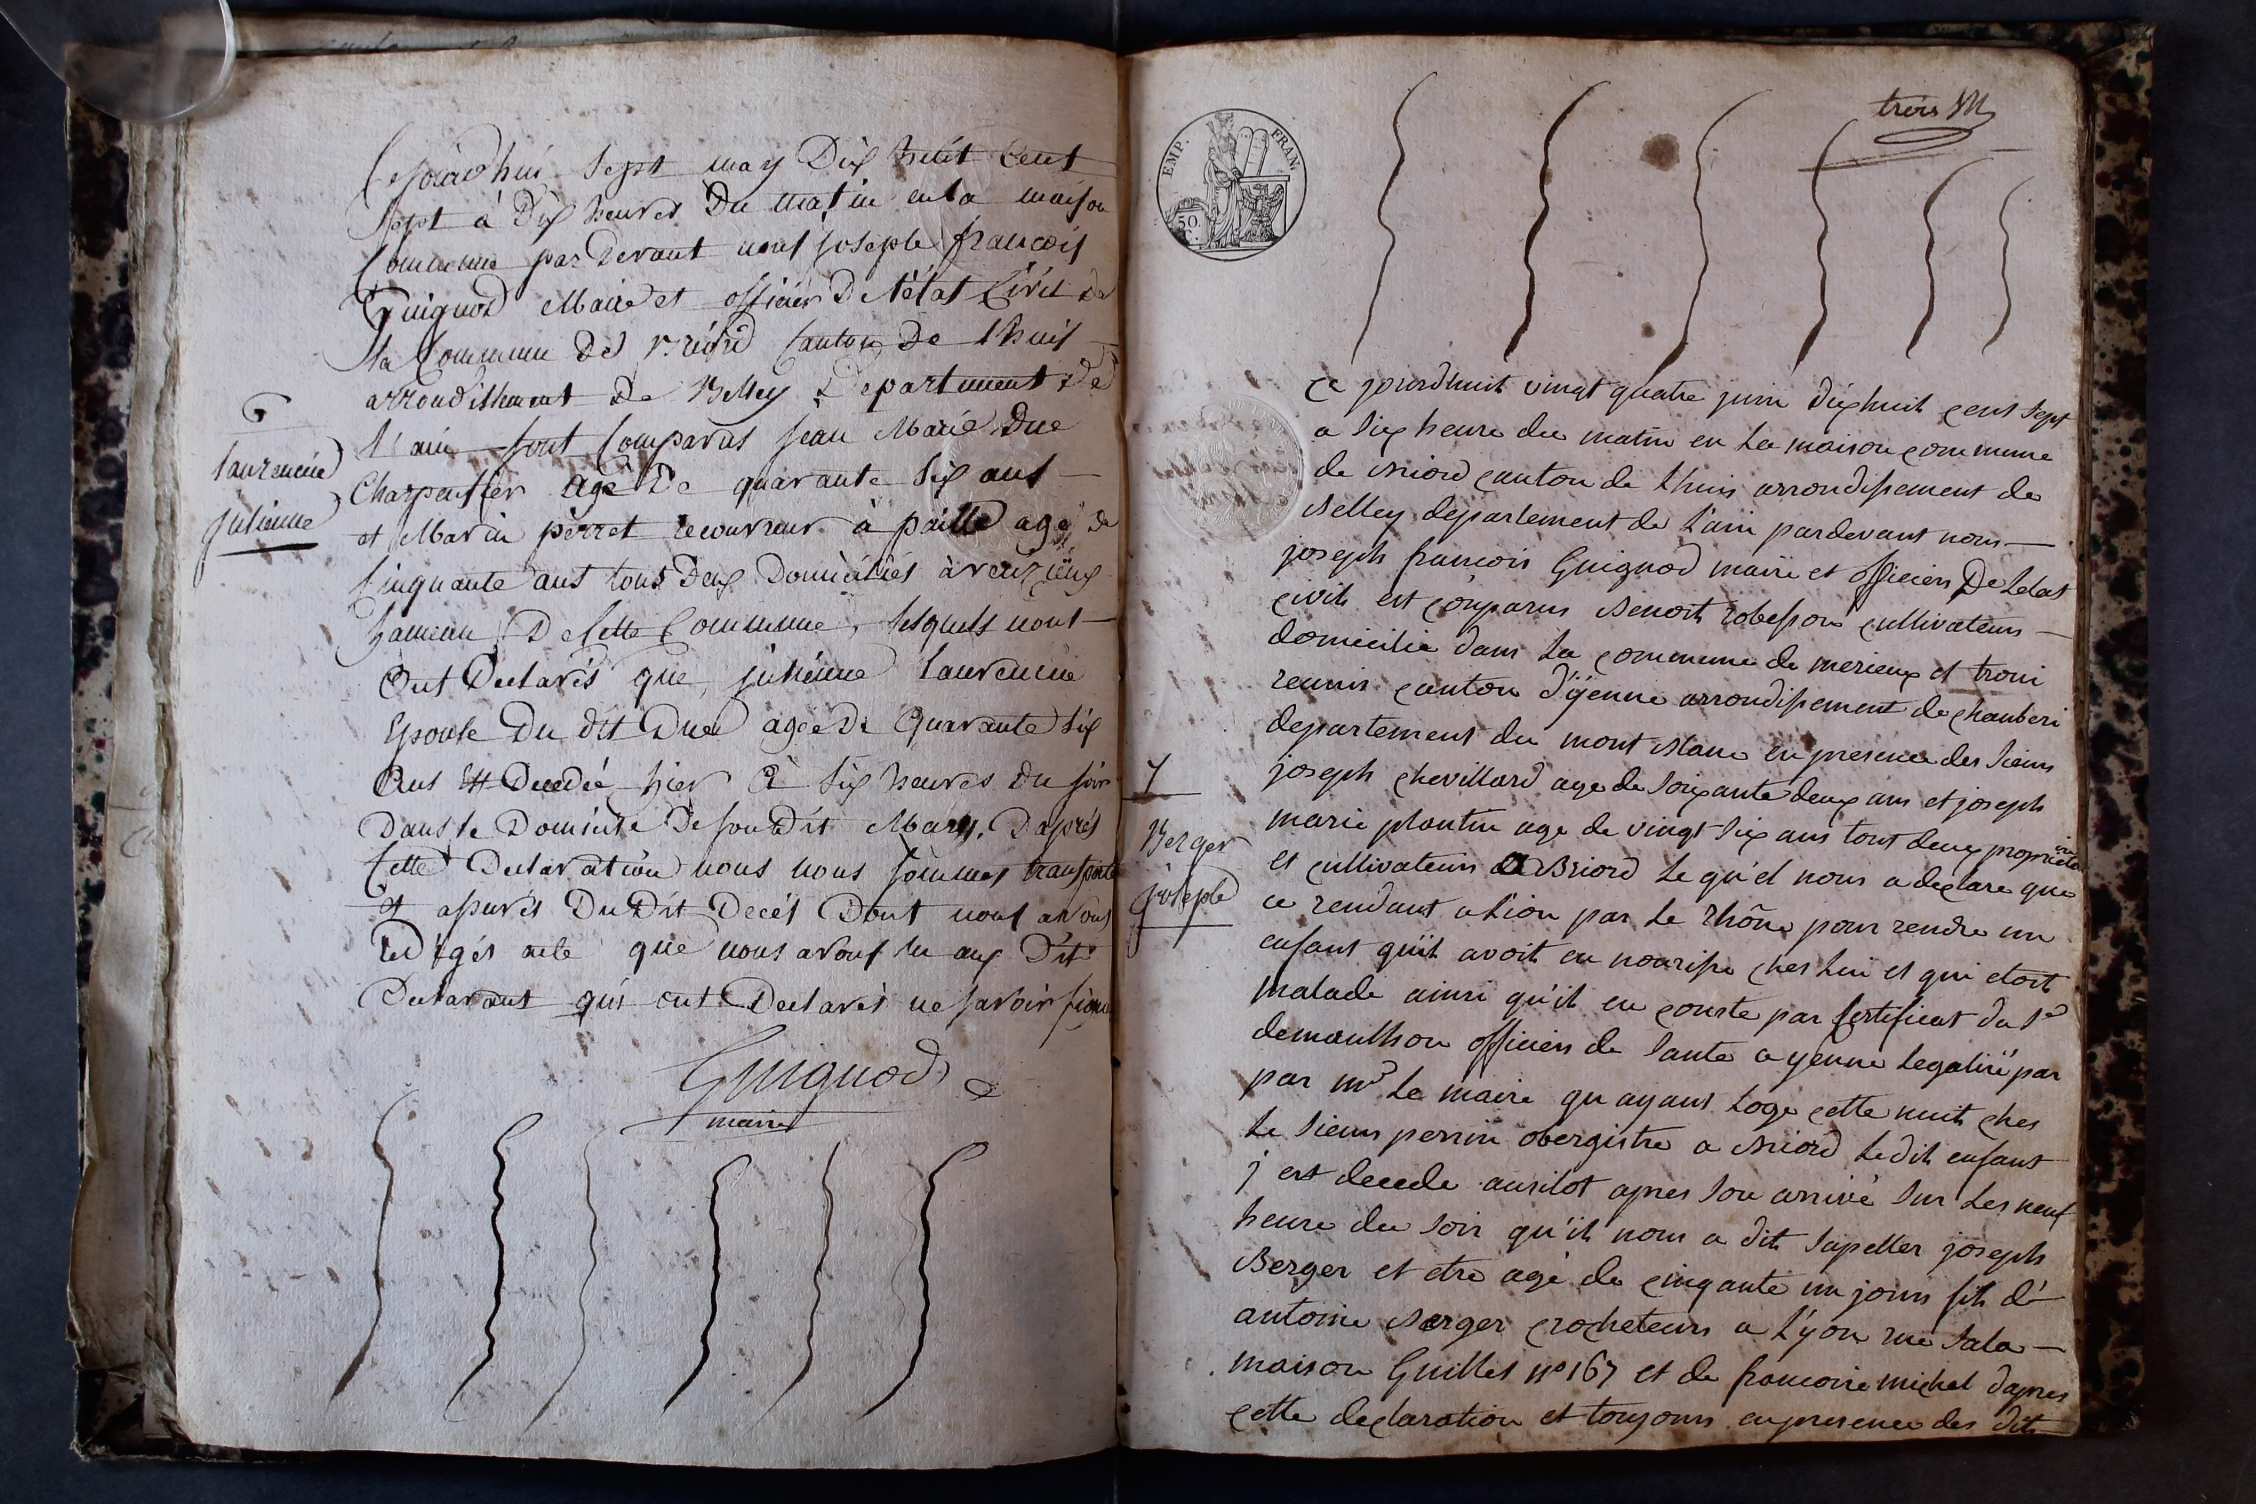 Cejourd'hui sept may Dix huit Cent
sept à Dix heures Du matin en la maison
Commune par Devant nous joseph françois
Guignod Maire et officier De l'état Civil de
la Commune De Briord Canton De Lhuis
arrondissement De Belley Département De
L'ain sont Comparus jean Marie Duc
Charpentier agé De quarante six ans
et Marin perret recouvreur à paille agé de
Cinquante ans tous Deux Domiciliés à verizieux
hameau De Cette Commune, lesquels nous
Ont Declarés que julienne laurencin
Epouse Du dit Duc agée De Quarante six
Ans est Decedée hier à six heures Du soir
Dans le Domicile De son Dit Mary. D'après
Cette Declaration nous nous sommes transporté
et assurés Du Dit Decès Dont nous avons
redigés acte que nous avons lu aux Dits
Declarants qui ont Declarés ne savoir signer
Guignod
maire
6
laurencin
julienne
trois
EMP. FRAN.
50 C.
Ce jourdhuit vingt quatre juin dix huit cent sept
a six heure du matin en la maison commune
de Briord canton de Lhuis arrondissement de
Belley departement de L'ain pardevant nous
joseph francois Guignod maire et officier De Letat
civil est comparus Benoit robesson cultivateur
domicilié dans la commune de merieux et troui
reunis canton d'yenne arrondissement de chamberi
departement du mont Blanc en presence des sieurs
joseph chevillard age de soixante deux ans et joseph
marie plantin age de vingt six ans tout deux proprietaire
et cultivateurs a Briord le qu'el nous a declare que
ce rendant a Lion par le rhône pour rendre un
enfant qu'il avoit en nourisse ches lui et qui etoit
malade ainsi qu'il en conste par Certificat du Sr
demanthon officier de sante a yenne legalisé par
par mr Le maire qu ayant logé cette nuit ches
Le sieur perrin obergistre a Briord Ledit enfant
j est decede ausitot apres son arrivé sur les neuf
heure du soir qu'il nous a dit s'apeller joseph
Berger et etre agé de cinqante un jours fils dé
antoine Berger crocheteur a L'yon rue sala
maison Guillet no 167 et de francoise michel d'apres
cette declaration et toujours en presence des dits
7
Berger
joseph